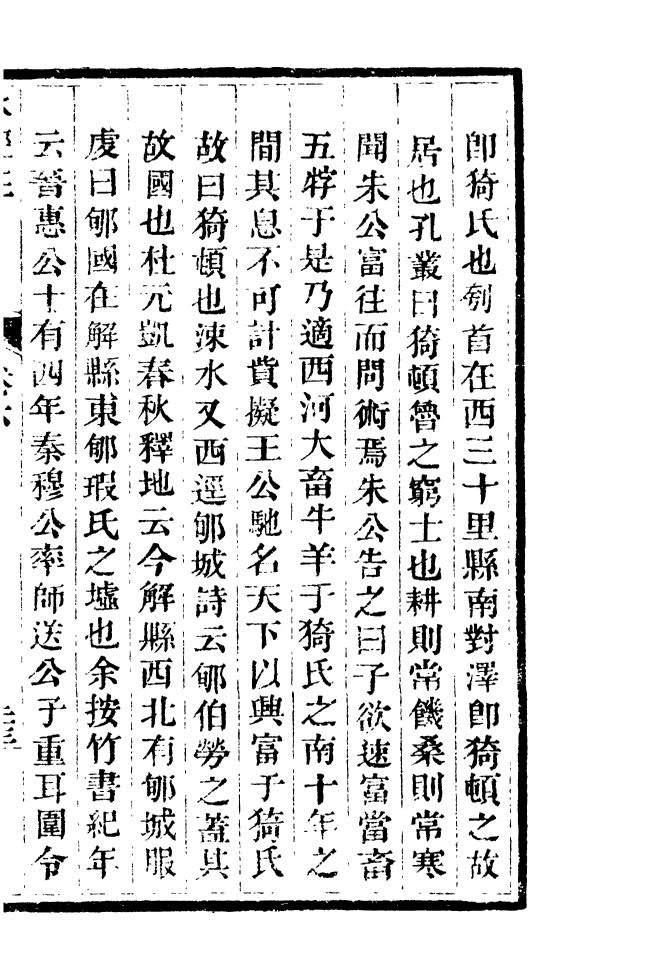 卽猗氏也刳首在西三十里縣南對澤卽猗頓之故
居也孔叢曰猗頓魯之窮士也耕則常饑桑則常寒
聞朱公富往而問術焉朱公告之曰子欲速富當畜
五牸于是乃適西河大畜牛羊于猗氏之南十年之
間其息不可計貲擬王公馳名天下以興富于猗氏
故曰猗頓也涑水又西逕郇城詩云郇伯勞之蓋其
故國也杜元凱春秋釋地云今解縣西北有郇城服
虔曰郇國在解縣東郇瑕氏之墟也余按竹書紀年
云晉惠公十有四年秦穆公率師送公子重耳圍令